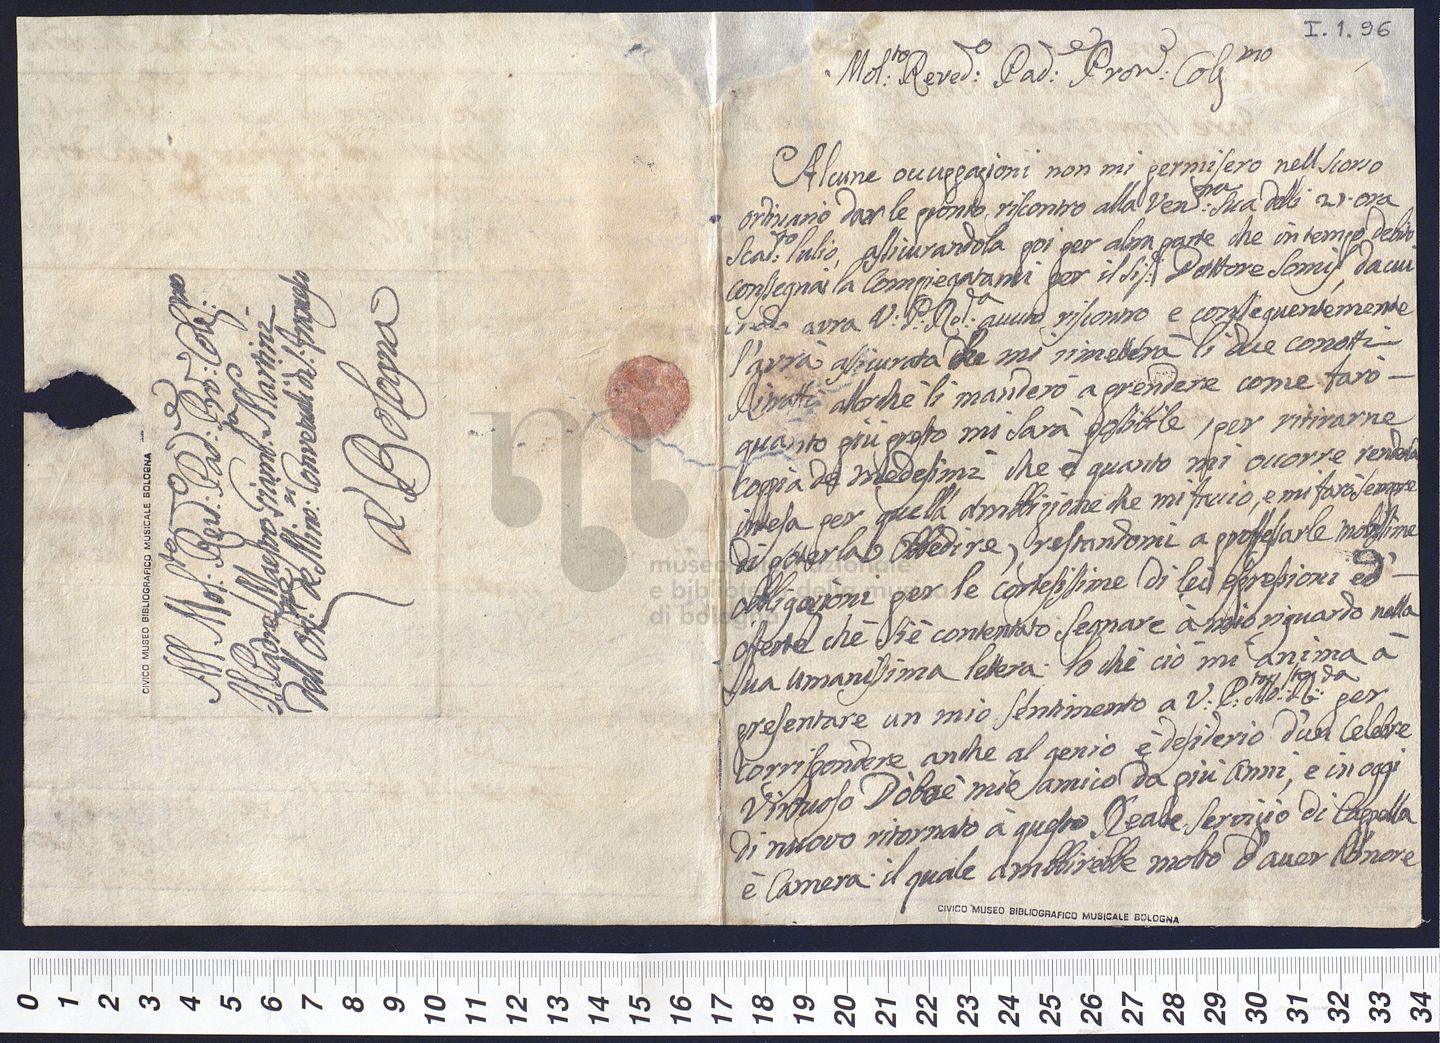 I. 1. 96
Mol:to Reved:o Pad:e Pron: Col:mo
Alcune occupazioni non mi permisero nell scorso
ordinario dar le pronto riscontro alla Ven:ma sua delli 21. ora
Scad:to lulio, assicurandola poi per altra parte che in tempo debito
consegnai la compiegatami per il sig: Dottore Somis, da cui
avra V: P: Rd:a avuto riscontro e consequentemente
l'avrà assicurata che mi rimetterà li due consotti
Ritratti allorchè li manderò a prendere come farò
quanto più presto mi sarà possibile, per ritirarne
coppia de medesimi che è quanto mi occorre renderla
intesa per quella ambbizione che mi faccio, e mi farò sempre
di poterla obbedire, restandomi a professarle moltissime
obbligazioni per le cortesissime di lei espressioni ed
offerte che si è contentato segnare à mio riguardo nella
sua umanissima lettera. Io chè ciò mi anima à
presentare un mio sentimento a V: P: per
corrispondere anche al genio è desiderio d'un celebre
Virtuoso Dóboè mio amico da più anni, e in oggi
di nuovo ritornato à questo Reale servizio di Capella
è Camera. il quale ambbirebbe molto d'aver l'onore
CIVICO MUSEO BIBLIOGRAFICO MUSICALE BOLOGNA
All Mol:to Revd:o Pad:e Pro: Col:mo
Il Padre Maestro Giamb:a Martini
dell Ord: de Min: Conven: di S: Franco
A Bologna
CIVICO MUSEO BIBLIOGRAFICO MUSICALE BOLOGNA
museo internazionale
e biblioteca della musica
di bologna
0 1 2 3 4 5 6 7 8 9 10 11 12 13 14 15 16 17 18 19 20 21 22 23 24 25 26 27 28 29 30 31 32 33 34